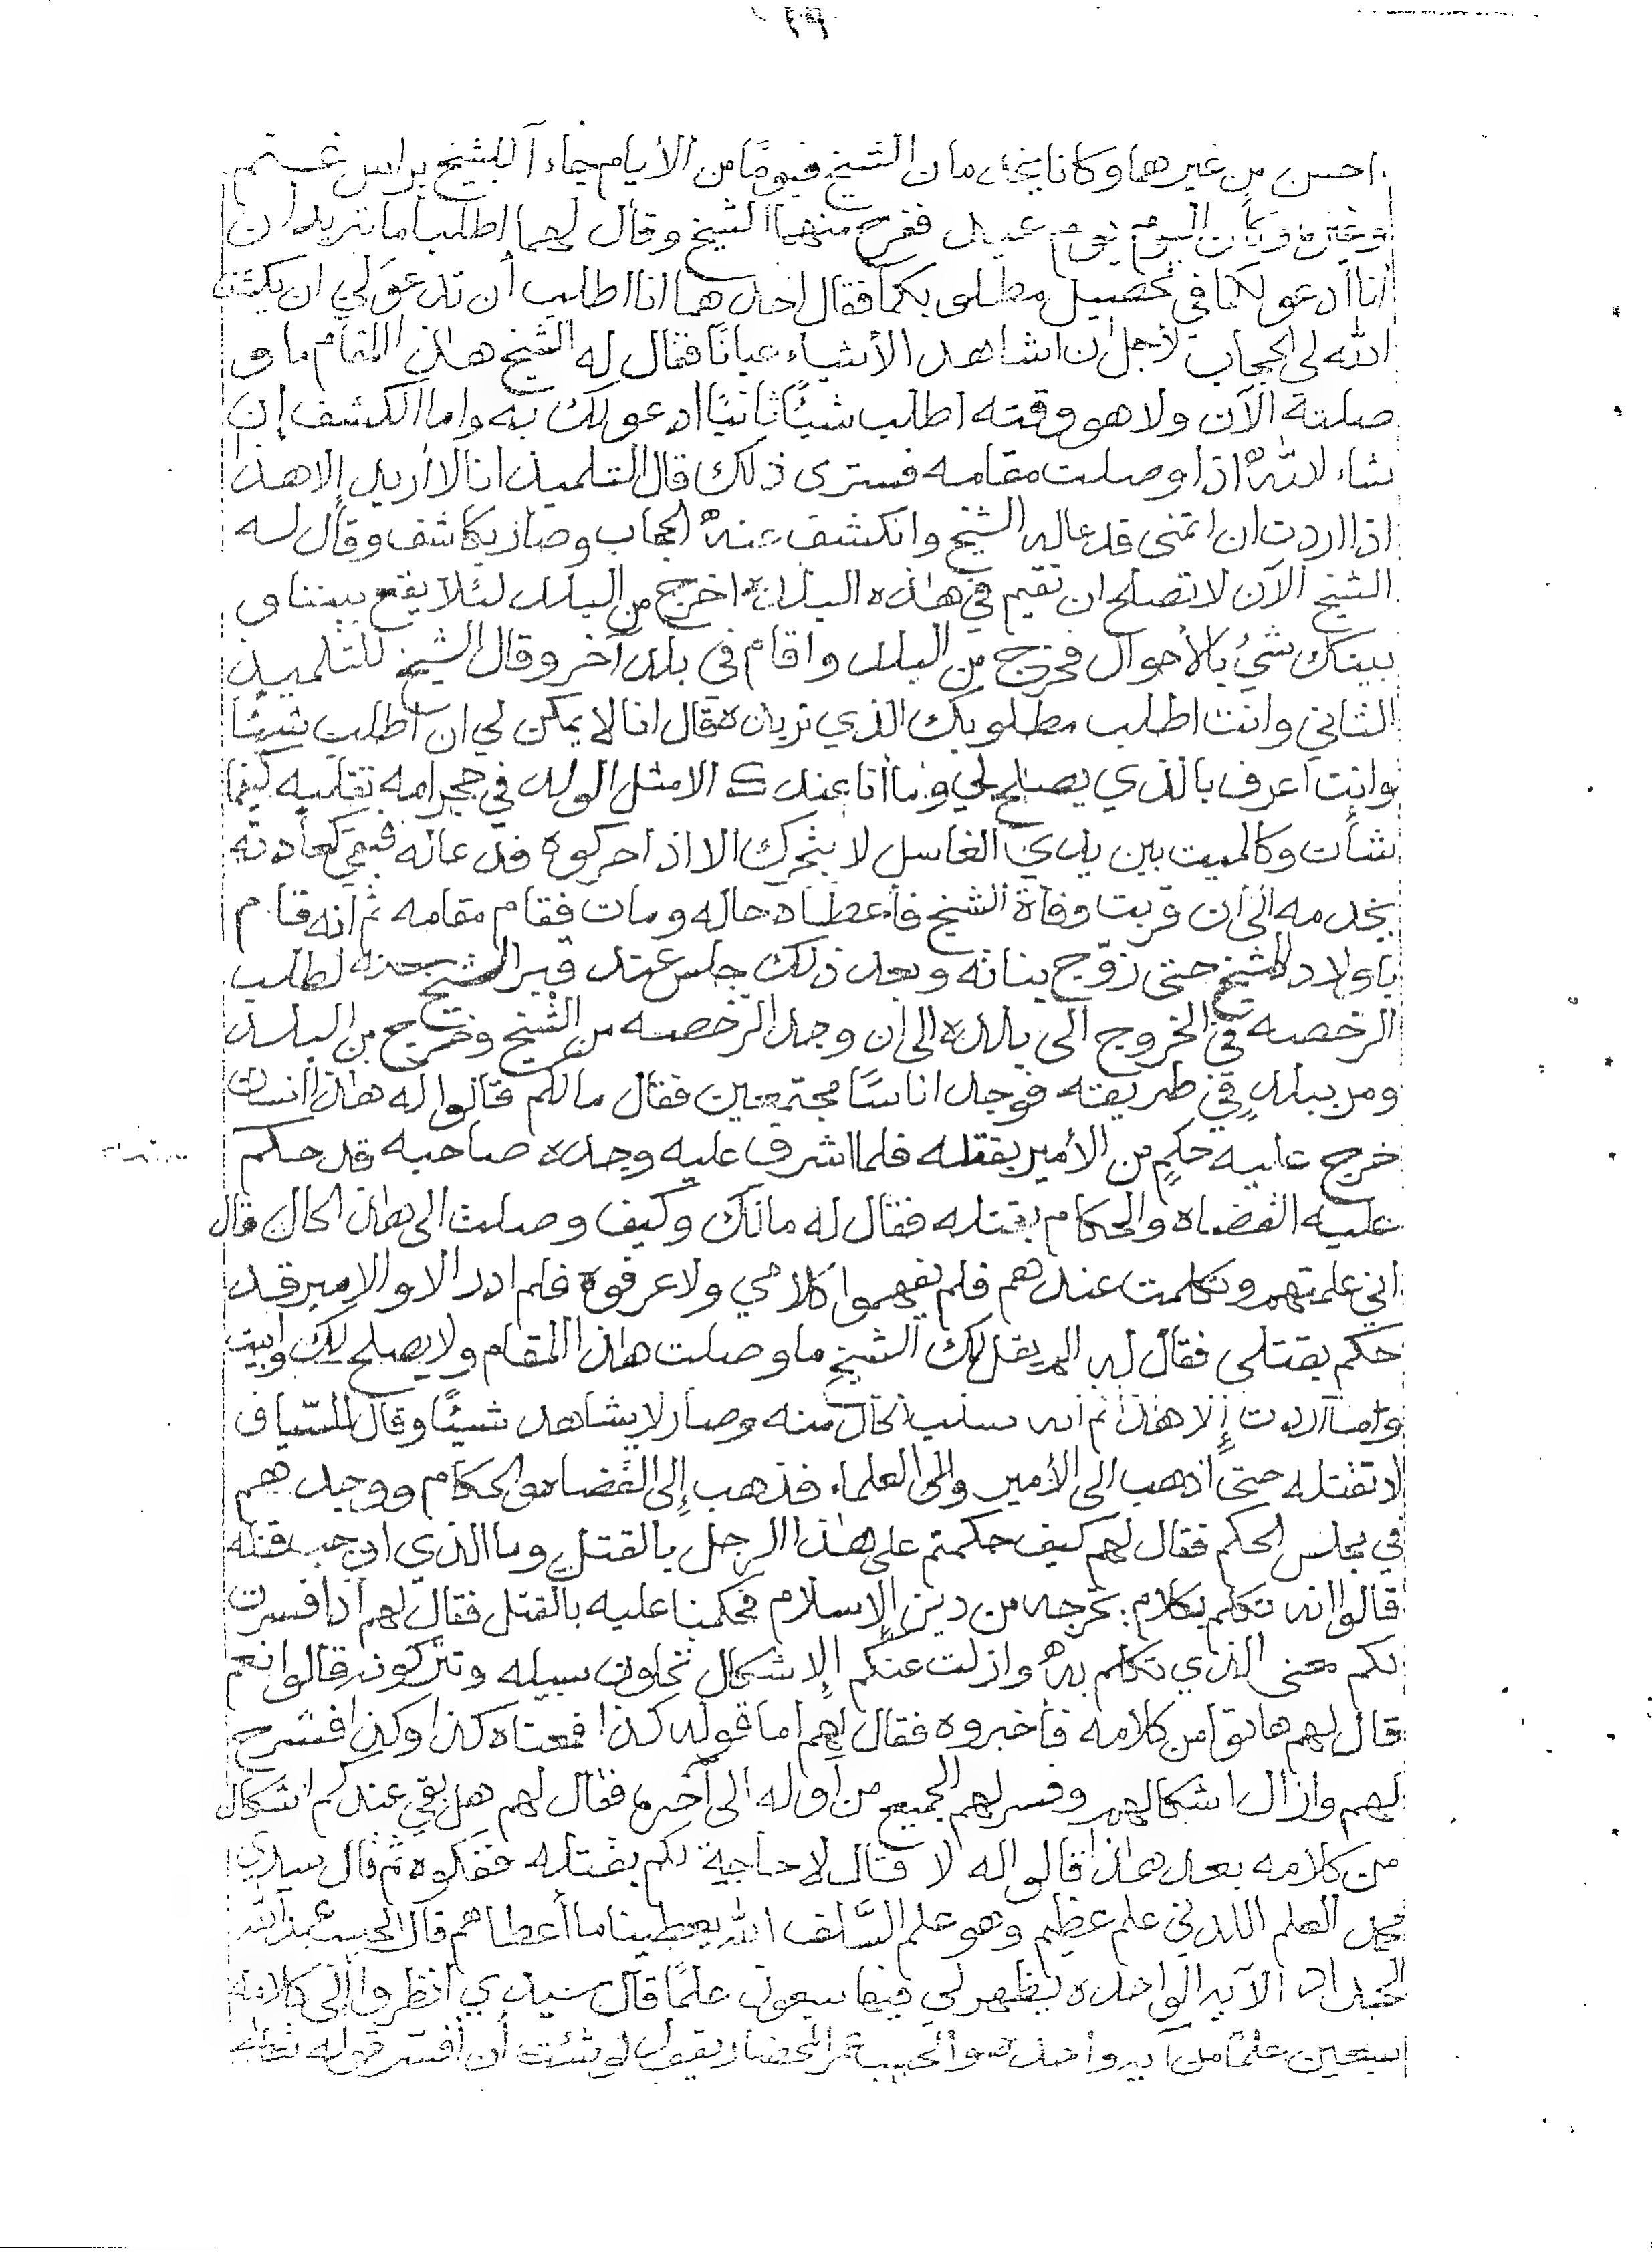 احسن من غيرهما وكانا يخدمان الشيخ فيومًا من الأيام جاءآ للشيخ براس غنم
وغيره وكان اليوم يوم عيد ففرح منهما الشيخ وقال لهما اطلبا ما تريدان
أنا أدعو لكما في تحصيل مطلوبكما فقال احدهما انا اطلب أن تدعو لي ان يكشف
الله لي الحجاب لأجل ان اشاهد الأشياء عيانًا فقال له الشيخ هاذا المقام ما و
صلته الآن ولا هو وقته اطلب شيئًا ثانيًا ادعو لك به واما الكشف إن
شاء لله اذا وصلت مقامه فسترى ذلك قال التلميذ انا لا أريد إلا هذا
اذا اردت ان اتمنى فدعاله الشيخ وانكشف عنه الحجاب وصار يكاشف وقال له
الشيخ الآن لا تصلح ان تقيم في هاذه البلد اخرج من البلد لئلا يقع بيننا و
بينك شيء بالأحوال فخرج من البلد واقام في بلد آخر وقال الشيخ للتلميذ
الثاني وانت اطلب مطلوبك الذي تريده فقال انا لا يمكن لي ان اطلب شيئًا
وانت اعرف بالذي يصلح لي وما أنا عندك الا مثل الولد في حجر امه تقلبه كيفما
شأت وكالميت بين يدي الغاسل لا يتحرك الا اذا حركوه فدعاله فبقي كعادته
يخدمه الى أن قربت وفاة الشيخ فأعطاه حاله ومات فقام مقامه ثم انه قام
باولاد الشيخ حتى زوّج بناته وبعد ذلك جلس عند قبر الشيخ لطلب
الرخصه في الخروج الى بلده الى ان وجد الرخصه من الشيخ وخرج من البلد
ومر ببلدٍ في طريقته فوجد اناسًا مجتمعين فقال مالكم قالوا له هاذا انسان
خرج عليه حكم من الأمير بقتله فلما اشرف عليه وجده صاحبه قد حكم
عليه القضاه والحكام بقتله فقال له مالك وكيف وصلت الى هاذا الحال قال
اني علمتهم وتكلمت عندهم فلم يفهموا كلامي ولا عرفوه فلم ادر الا والامير قد
حكم بقتلي فقال له الم يقل لك الشيخ ما وصلت هاذا المقام ولا يصلح لك وابيت
وما اردت إلا هذا ثم انه سلب الحال منه وصار لا يشاهد شيئًا وقال للسّياف
لا تقتله حتى أذهب الى الأمير والى العلماء فذهب إلى القضاه والحكام ووجدهم
في مجلس الحكم فقال لهم كيف حكمتم على هذا الرجل بالقتل وما الذي اوجب قتله
قالوا إنه تكلم بكلام يخرجه من دين الإسلام فحكمنا عليه بالقتل فقال لهم اذا فسرت
لكم معنى الذي تكلم به وازلت عنكم الإشكال تخلون سبيله وتتركونه قالوا نعم
قال لهم هاتوا من كلامه فأخبروه فقال لهم اما قوله كذا فمعناه كذا وكذا فشرح
لهم وازال اشكالهم وفسر لهم الجميع من أوله الى آخره فقال لهم هل بقي عندكم اشكال
من كلامه بعد هاذا قالوا له لا قال لا حاجة لكم بقتله ففكوه ثم قال سيدي
محمد العلم اللدني علم عظيم وهو علم السَّلف الله يعطينا ما أعطاهم قال الحبيب عبدالله
الحداد الآيه الواحده يظهر لي فيها سبعون علمًا قال سيدي انظروا إلى كلامه
سبعين علمًا من آيه واحدة والحبيب عمر المحضار يقول لو شئت أن أفسر قوله تعالى